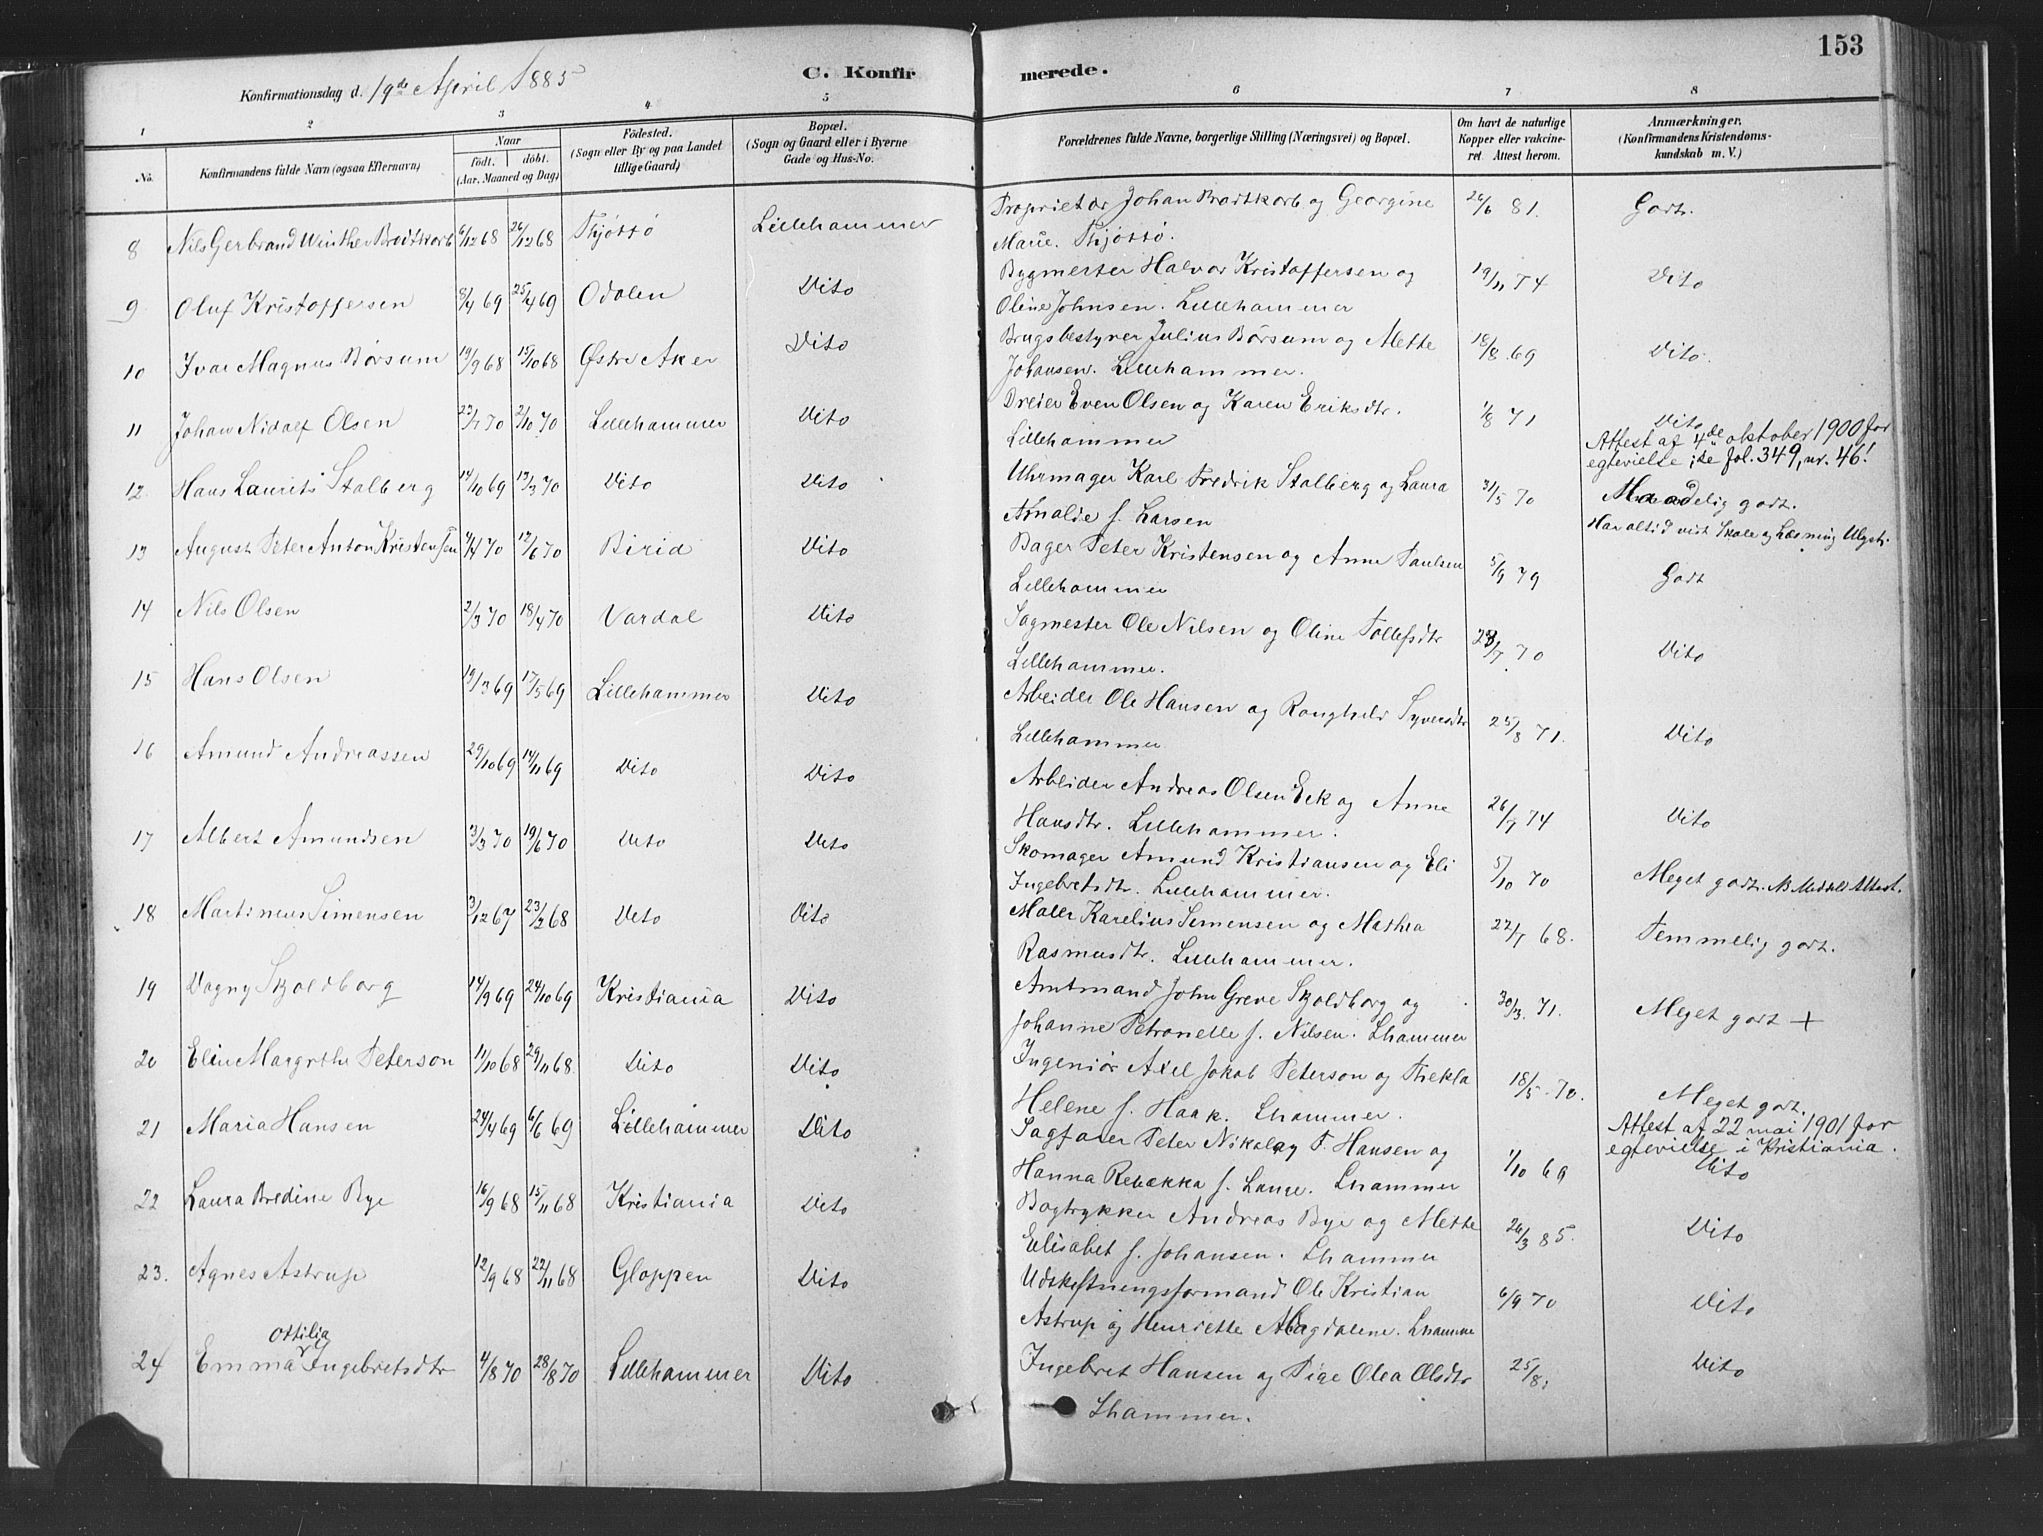 153
C. Konfirmerede.
Konfirmationsdag d. 19de April 1885
1 2 3 4 5 6 7 8
No.
Konfirmandens fulde Navn (ogsaa Efternavn)
Naar
födt. döbt.
(Aar, Maaned og Dag)
Födested.
(Sogn eller By og paa Landet
tillige Gaard)
Bopæl.
(Sogn og Gaard eller i Byerne
Gade og Hus-No.
Forældrenes fulde Navne, borgerlige Stilling (Næringsvei) og Bopæl.
Om havt de naturlige
Kopper eller vakcine-
ret. Attest herom.
Anmærkninger.
(Konfirmandens Kristendoms-
kundskab m. V.)
8 Nils Gerbrand Winther Brodtkorb 6/12 68 26/12 68 Thjøttø Lillehammer Proprietær Johan Brodtkorb og Georgine 26/6 81. Godt.
Marie. Thjøttø.
9 Oluf Kristoffersen 8/4 69 25/4 69 Odalen Dito Bygmester Halvor Kristoffersen og 19/11 74 Dito
Oline Johnsen. Lillehammer
10 Ivar Magnus Børsum 19/9 68 15/10 68 Østre Aker Dito Brugsbestyrer Julius Børsum og Mette 18/8 69 Dito.
Johansen. Lillehammer.
11 Johan Nidolf Olsen 23/7 70 2/10 70 Lillehammer Dito Dreier Even Olsen og Karen Eriksdtr. 1/8 71 Dito
Lillehammer
Attest af 4de oktober 1900 for
egtevielse, se fol. 349, nr. 46!
12 Hans Laurits Stalberg 14/10 69 13/3 70 Dito Dito Uhrmager Karl Fredrik Stalberg og Laura 31/5 70 Maadelig godt.
Amalie f. Larsen
Har altid vist Skole og Læsning Ulyst.
13 August Peter Anton Kristensen 4/4 70 12/6 70 Birid Dito Bager Peter Kristensen og Anne Paulsen 5/9 79 Godt
Lillehammer
14 Nils Olsen 2/3 70 18/4 70 Vardal Dito Sagmester Ole Nilsen og Oline Tollefsdtr 28/7 70 Dito
Lillehammer.
15 Hans Olsen 19/3 69 17/5 69 Lillehammer Dito Arbeider Ole Hansen og Ronghild Syversdtr 25/8 71. Dito
Lillehammer
16 Amund Andreassen 29/10 69 14/11 69 Dito Dito Arbeider Andreas Olsen Eek og Anne 26/7 74 Dito
Hansdtr. Lillehammer.
17 Albert Amundsen 3/3 70 19/6 70 Dito Dito Skomager Amund Kristiansen og Eli 5/10 70 Meget godt. NB Meddelt Attest.
Ingebretsdtr. Lillehammer.
18 Martinius Simensen 3/12 67 23/2 68 Dito Dito Maler Karelius Simensen og Mathea 22/7 68. Temmelig godt.
Rasmusdtr. Lillehammer.
19 Dagny Skjoldborg 14/9 69 24/10 69 Kristiania Dito Amtmand John Greve Skjoldborg og 30/3. 71. Meget godt +
Johanne Petronelle f. Nilsen. Lhammer
20 Elin Margrethe Peterson 11/10 68 29/11 68 Dito Dito Ingeniør Axel Jakob Peterson og Thekla 18/5 70. Meget godt.
Helene f. Haak. Lhammer.
Attest af 22 mai 1901 for
egtevielse i Kristiania.
21 Maria Hansen 24/4 69 6/6 69 Lillehammer Dito Sagfører Peter Nikolay T. Hansen og 1/10 69 Dito
Hanna Rebekka f. Lange. Lhammer
22 Laura Bredine Bye 16/9 68 15/11 68 Kristiania Dito Bogtrykker Andreas Bye og Mette 26/3 85. Dito
Elisabet f. Johansen. Lhammer
23. Agnes Astrup 12/9 68 22/11 68 Gloppen Dito Udskiftningsformand Ole Kristian 6/9 70 Dito
Astrup og Henriette Magdalene. Lhammer
24 Emma Ottilia Ingebretsdtr 4/8 70 28/8 70 Lillehammer Dito Ingebret Hansen og Pige Olea Olsdtr 25/8. Dito
Lhammer.